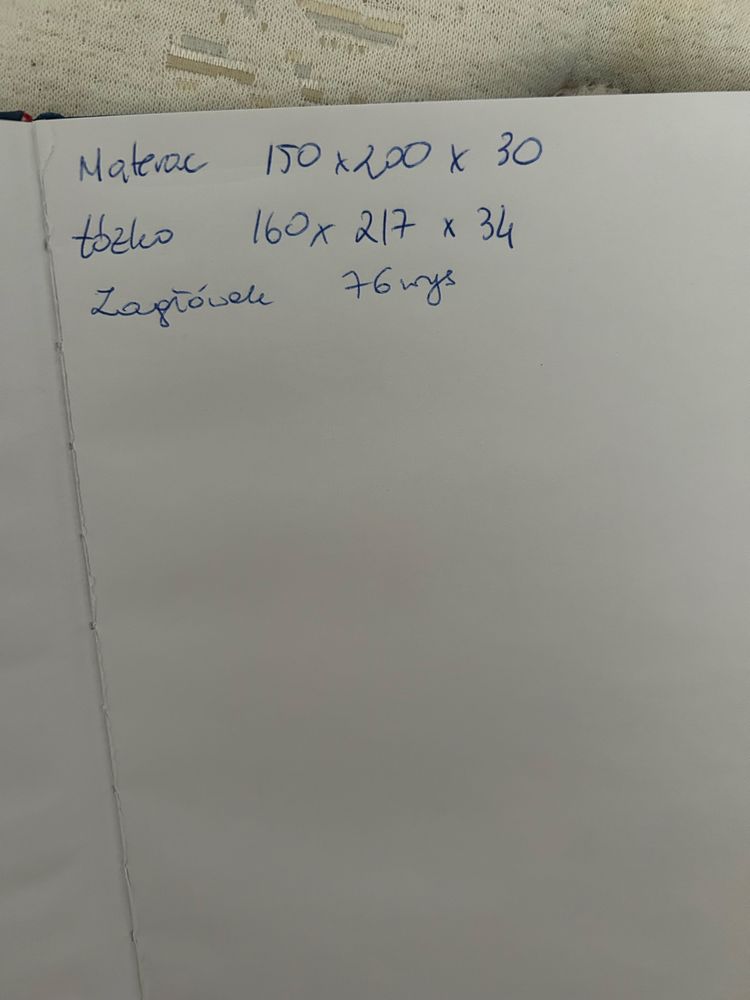 Materac 150 x 200 x 30
łózko 160 x 217 x 34
Zagłówek 76 wys